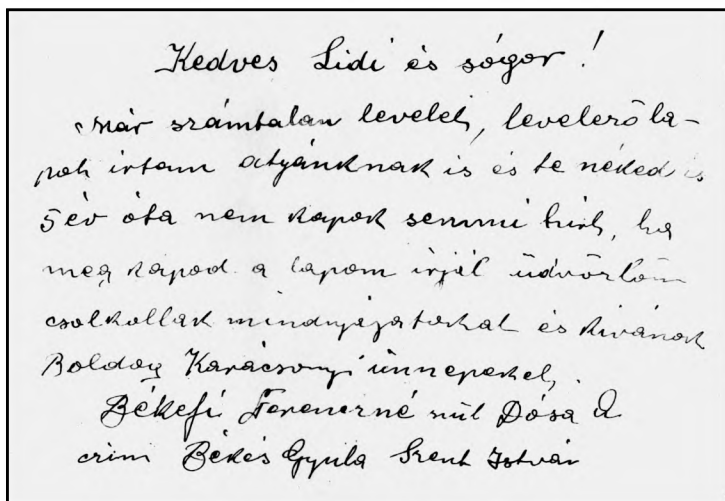 Kedves Lidi és sógor!
már számtalan levelet, levelezőla-
pot irtam atyánknak is és te néked is
5 év óta nem kapok semmi hirt, ha
meg kapod a lapom irjál üdvözlöm
csolkollak mindnyájatokat és kivánok
Boldog Karácsonyi ünnepeket.
Békefi Ferencné szül Dósa
czim Békés Gyula Szent István